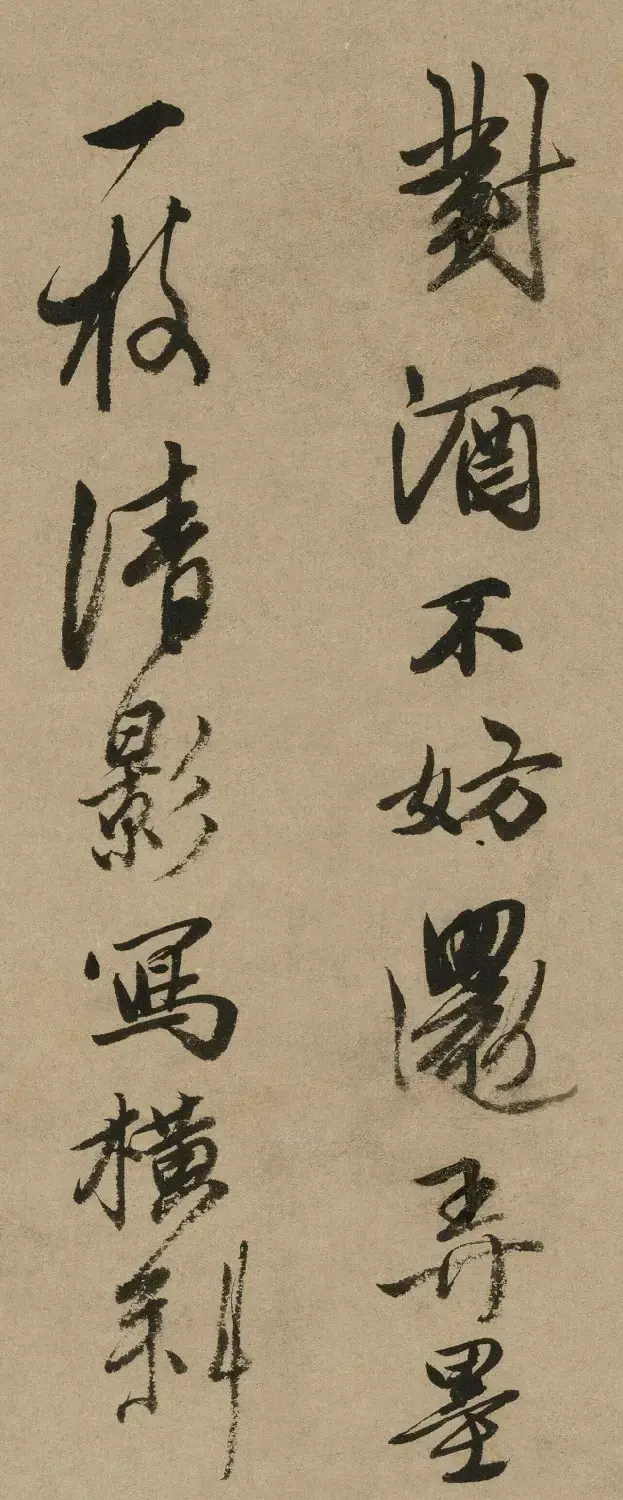 對酒不妨還弄墨
一枝清影寫橫斜